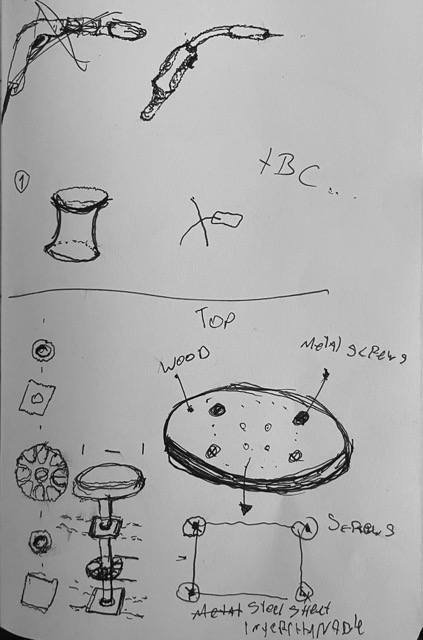 XBC...
1
TOP
WOOD
METAL SCREWS
SCREWS
METAL STEEL SHEET